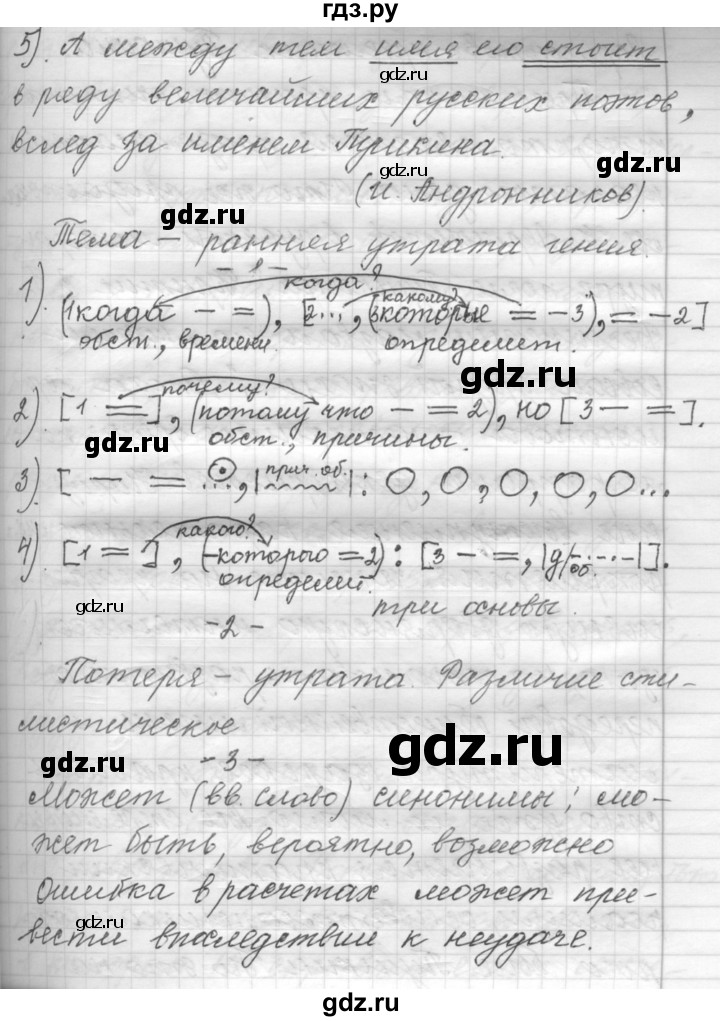 гдз.ру
5). А между тем имя его стоит
в ряду величайших русских поэтов,
вслед за именем Пушкина.
(И. Андронников).
Тема – ранняя утрата гения.
- 1 -
1). (1 когда – =), [2..., (3 которые = – 3), = – 2]
когда? какому?
обст., времени. определит.
2). [1 =], (потому что – = 2), но [3 – =].
почему?
обст., причины.
3). [ – = ..., |прич. об.| : О, О, О, О, О...
4). [1 = ], (– которого = 2) : [3 – =, |д/об.|].
какого?
определит.
три основы.
- 2 -
Потеря – утрата. Различие сти-
листическое
- 3 -
Может (вв. слово) синонимы: мо-
жет быть, вероятно, возможно
Ошибка в расчетах может при-
вести впоследствии к неудаче.
gdz.ru
gdz.ru
gdz.ru
gdz.ru
gdz.ru
gdz.ru
gdz.ru
gdz.ru
gdz.ru
gdz.ru
gdz.ru
gdz.ru
gdz.ru